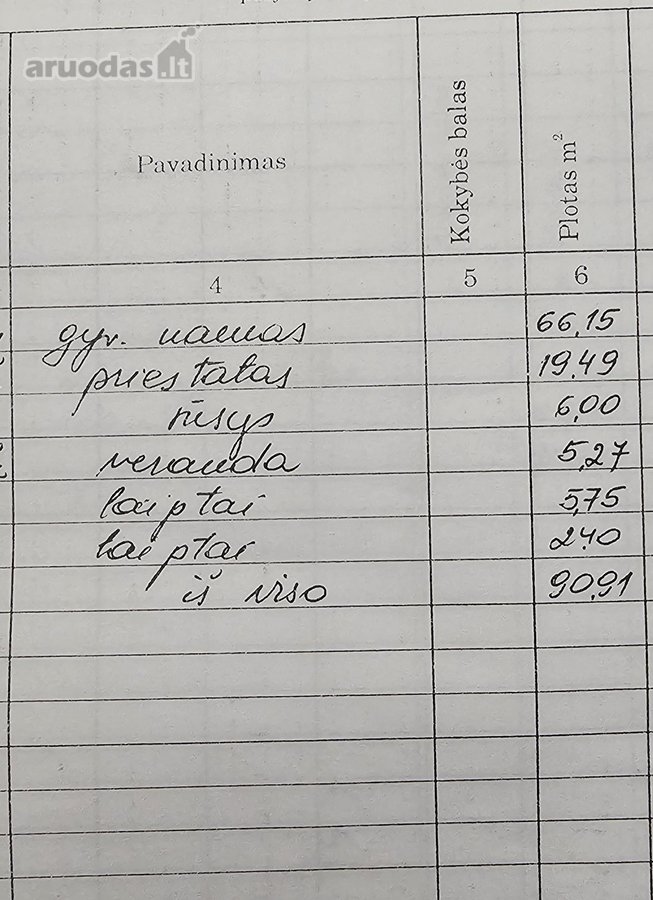 aruodas.lt
Pavadinimas
Kokybės balas
Plotas m²
4 5 6
gyv. namas 66,15
priestatas 19.49
rūsys 6,00
veranda 5,27
laiptai 5,75
laiptai 2,40
iš viso 90,91